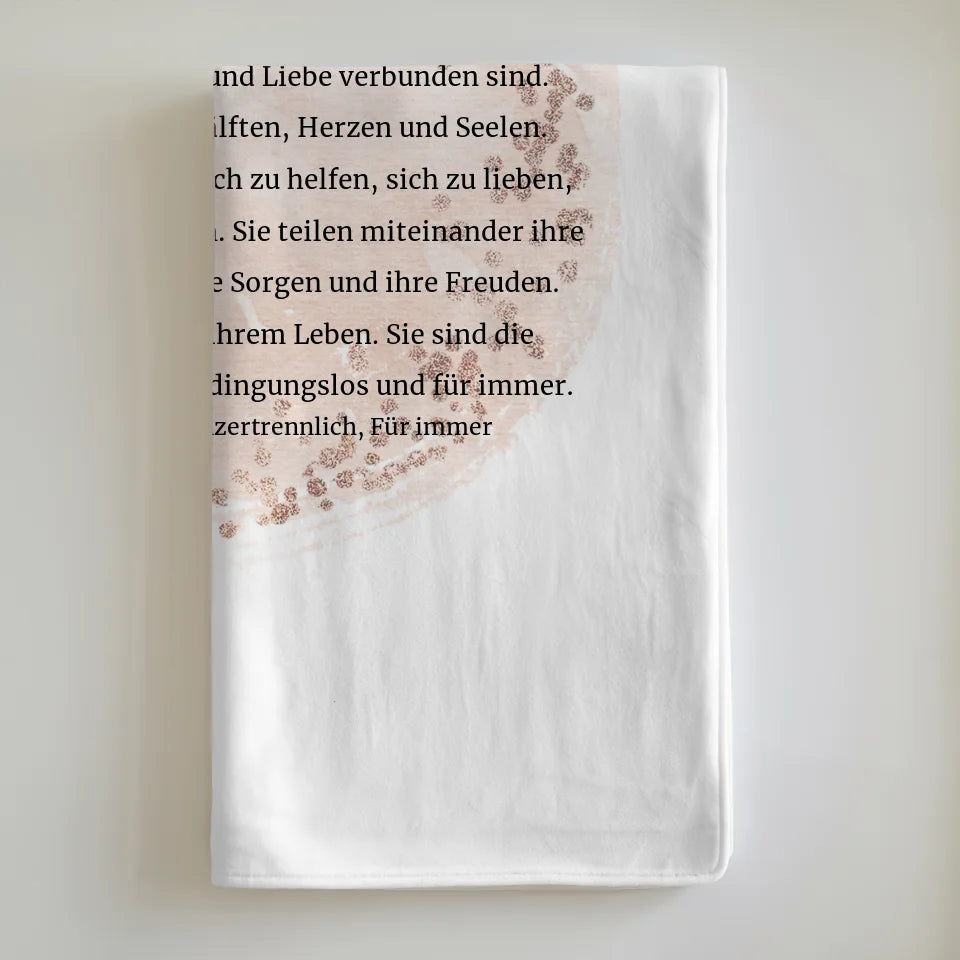 und Liebe verbunden sind.
älften, Herzen und Seelen.
ch zu helfen, sich zu lieben,
. Sie teilen miteinander ihre
e Sorgen und ihre Freuden.
ihrem Leben. Sie sind die
dingungslos und für immer.
zertrennlich, Für immer